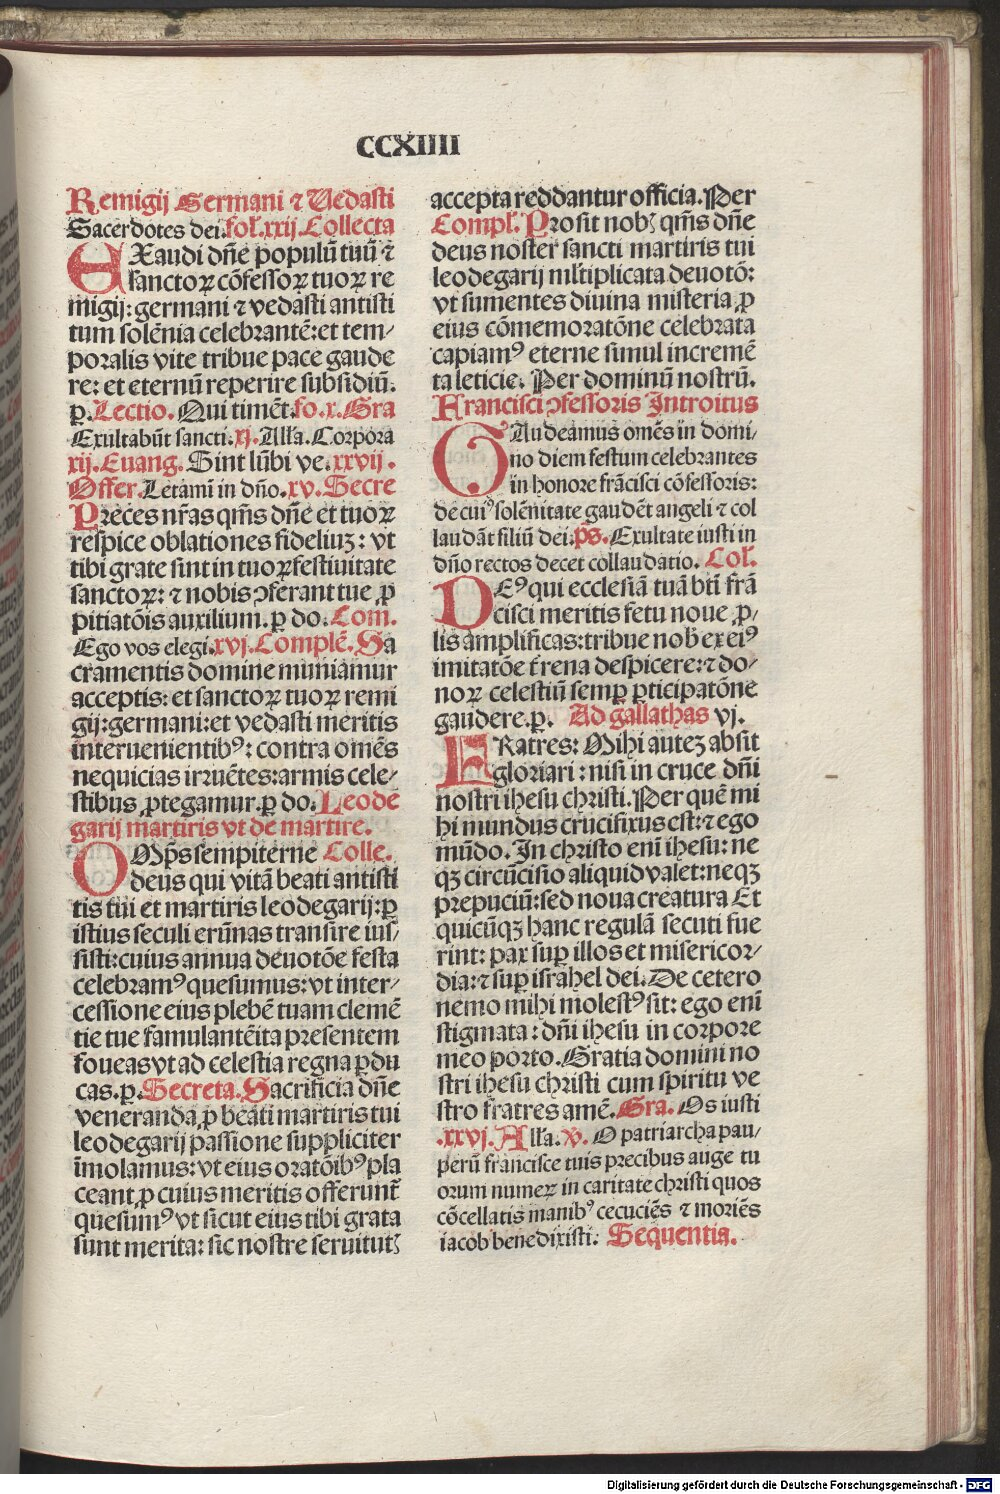 CCXIIII
Remigij Germani ⁊ Vedasti
Sacerdotes dei. fol. xxij Collecta
EXaudi dn̄e populū tuū ⁊
sanctoꝝ cōfessoꝝ tuoꝝ re
migij: germani ⁊ vedasti antisti
tum solēnia celebrantē: et tem⸗
poralis vite tribue pace gaude
re: et eternū reperire subsidiū.
p. Lectio. Qui timēt. fo. x. Gra
Exultabūt sancti. xj. Alła. Corpora
xij. Euang. Sint lūbi ve. xxvij.
Offer. Letamī in dño. xv. Secre
Preces nr̄as qm̄s dn̄e et tuoꝝ
respice oblationes fideliuȝ: vt
tibi grate sint in tuoꝝ festiuitate
sanctoꝝ: ⁊ nobis ꝯferant tue ꝓ
pitiatōis auxilium. ꝑ do. Com.
Ego vos elegi. xvj. Complē. Sa
cramentis domine muniamur
acceptis: et sanctoꝝ tuoꝝ remi
gij: germani: et vedasti meritis
interuenientibꝰ: contra omēs
nequicias irruētes: armis cele⸗
stibus ꝓtegamur. ꝑ do. Leode
garij martiris vt de martire.
OMp̄s sempiterne Colle.
deus qui vitā beati antisti
tis tui et martiris leodegarij: ꝑ
istius seculi erūnas transire ius⸗
sisti: cuius annua deuotōe festa
celebramꝰ quesumus: vt inter⸗
cessione eius plebē tuam clemē
tie tue famulantē ita presentem
foueas vt ad celestia regna ꝑdu
cas. p. Secreta. Sacrificia dn̄e
veneranda ꝓ beati martiris tui
leodegarij passione suppliciter
īmolamus: vt eius oratōibꝰ pla
ceant ꝓ cuius meritis offerunt̄
quesumꝰ vt sicut eius tibi grata
sunt merita: sic nostre seruitutꝭ
accepta reddantur officia. Per
Compł. Prosit nobꝭ qm̄s dn̄e
deus noster sancti martiris tui
leodegarij ml̄tiplicata deuotō:
vt sumentes diuina misteria ꝓ
eius cōmemoratōne celebrata
capiamꝰ eterne simul incremē
ta leticie. Per dominū nostrū.
Francisci ꝯfessoris Introitus
GAudeamus omēs in domi⸗
no diem festum celebrantes
in honore frācisci cōfessoris:
de cuiꝰ solēnitate gaudēt angeli ⁊ col
laudāt filiū dei. ps. Exultate iusti in
dño rectos decet collaudatio. Col.
DEꝰ qui ecclesiā tuā bt̄i frā
cisci meritis fetu noue ꝓ⸗
lis amplificas: tribue nob̄ ex eiꝰ
imitatōe t̄rena despicere: ⁊ do⸗
noꝝ celestiū semꝑ ꝑticipatōne
gaudere. p. Ad gallathas vj.
FRatres: Mihi auteȝ absit
gloriari: nisi in cruce dn̄i
nostri ihesu christi. Per quē mi
hi mundus crucifixus est: ⁊ ego
mūdo. In christo enī ihesu: ne
qȝ circūcisio aliquid valet: neqȝ
prepuciū: sed noua creatura Et
quicūqȝ hanc regulā secuti fue
rint: pax suꝑ illos et misericor⸗
dia: ⁊ suꝑ isrāhel dei. De cetero
nemo mihi molestꝰ sit: ego enī
stigmata: dn̄i ihesu in corpore
meo porto. Gratia domini no
stri ihesu christi cum spiritu ve
stro fratres amē. Gra. Os iusti
.xxvj. Alła. V. O patriarcha pau⸗
perū francisce tuis precibus auge tu
orum numeꝝ in caritate christi quos
cōcellatis manibꝰ cecuciēs ⁊ moriēs
iacob benedixisti. Sequentia.
Digitalisierung gefördert durch die Deutsche Forschungsgemeinschaft - DFG